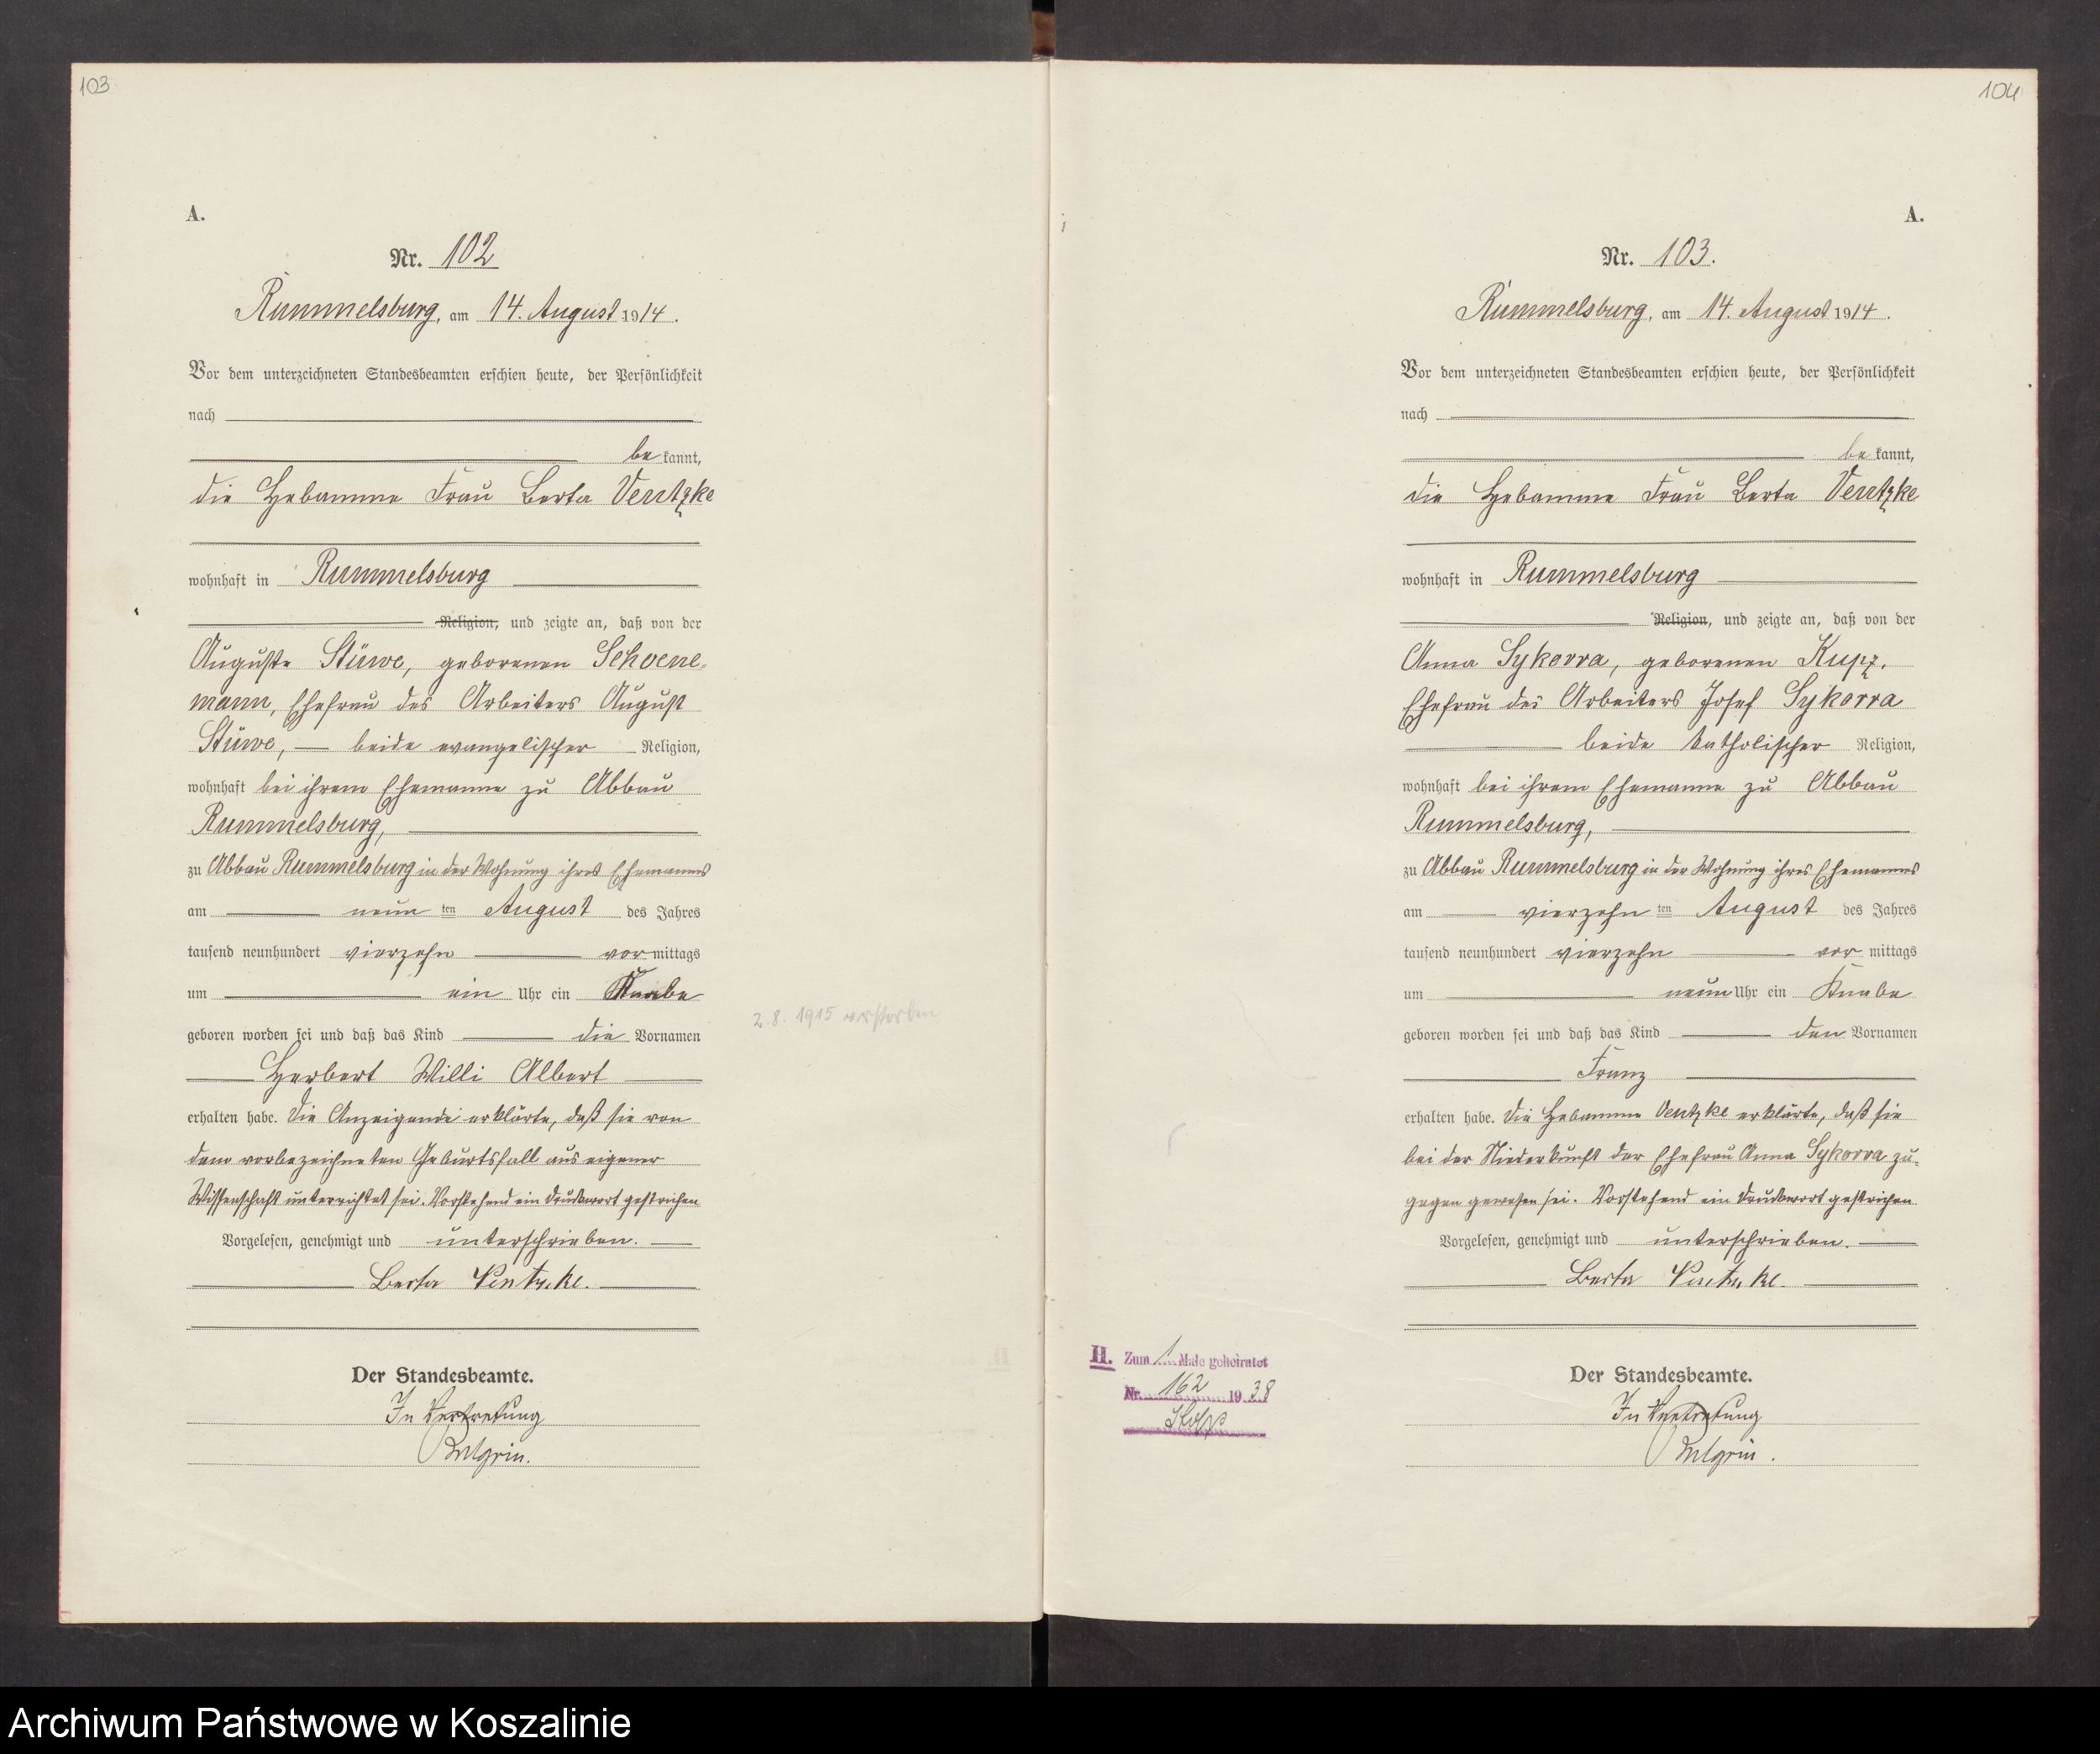 103
A.
Nr. 102
Rummelsburg, am 14. August 1914.
Vor dem unterzeichneten Standesbeamten erschien heute, der Persönlichkeit
nach
be kannt,
die Hebamme Frau Berta Ventzke
wohnhaft in Rummelsburg
Religion, und zeigte an, daß von der
Auguste Stüwe, geborenen Schoene-
mann, Ehefrau des Arbeiters August
Stüwe, — beide evangelischer Religion,
wohnhaft bei ihrem Ehemanne zu Abbau
Rummelsburg,
zu Abbau Rummelsburg in der Wohnung ihres Ehemannes
am neun ten August des Jahres
tausend neunhundert vierzehn vor mittags
um ein Uhr ein Knabe
geboren worden sei und daß das Kind die Vornamen
Herbert Willi Albert
erhalten habe. Die Anzeigende erklärte, daß sie von
dem vorbezeichneten Geburtsfall aus eigener
Wissenschaft unterrichtet sei. Vorstehend ein Druckwort gestrichen
Vorgelesen, genehmigt und unterschrieben.
Berta Ventzke.
Der Standesbeamte.
In Vertretung
2.8. 1915 verstorben
104
A.
Nr. 103.
Rummelsburg, am 14. August 1914.
Vor dem unterzeichneten Standesbeamten erschien heute, der Persönlichkeit
nach
be kannt,
die Hebamme Frau Berta Ventzke
wohnhaft in Rummelsburg
Religion, und zeigte an, daß von der
Anna Sykorra, geborenen Kupz,
Ehefrau des Arbeiters Josef Sykorra
beide katholischer Religion,
wohnhaft bei ihrem Ehemanne zu Abbau
Rummelsburg,
zu Abbau Rummelsburg in der Wohnung ihres Ehemannes
am vierzehn ten August des Jahres
tausend neunhundert vierzehn vor mittags
um neun Uhr ein Knabe
geboren worden sei und daß das Kind den Vornamen
Franz
erhalten habe. Die Hebamme Ventzke erklärte, daß sie
bei der Niederkunft der Ehefrau Anna Sykorra zu-
gegen gewesen sei. Vorstehend ein Druckwort gestrichen
Vorgelesen, genehmigt und unterschrieben.
Berta Ventzke.
Der Standesbeamte.
In Vertretung
H. Zum 1 Male geheiratet
Nr. 162 1938
Stolp
Archiwum Państwowe w Koszalinie